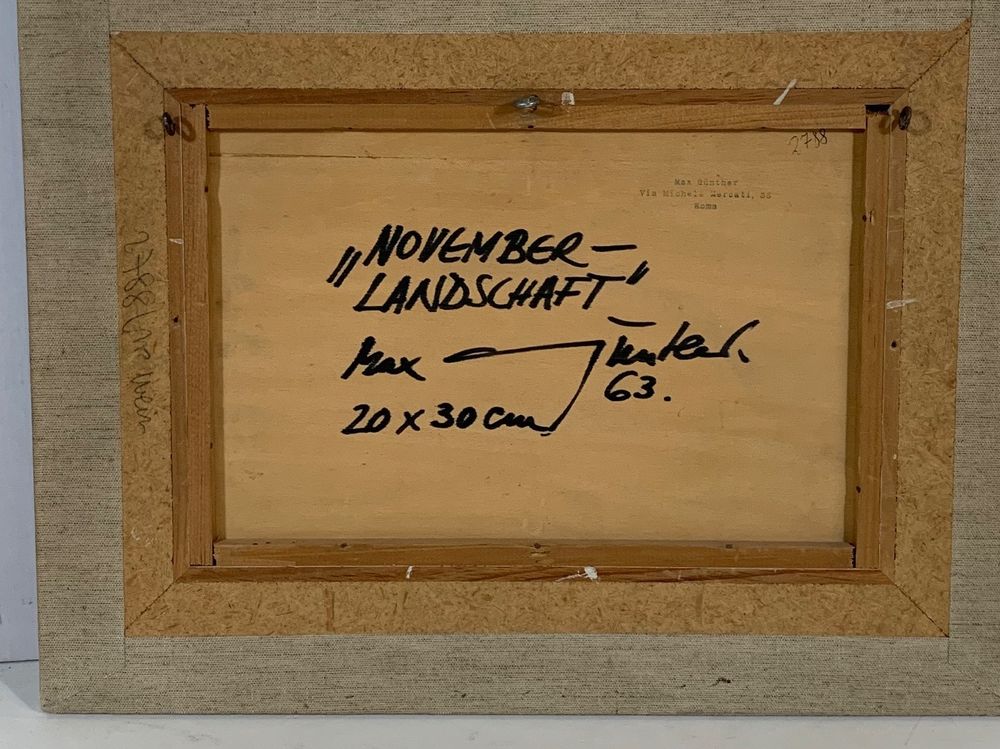 2788
Max Günther
Via Michele Mercati, 36
Roma
„NOVEMBER-
LANDSCHAFT"
Max Günther.
63.
20 x 30 cm
2788